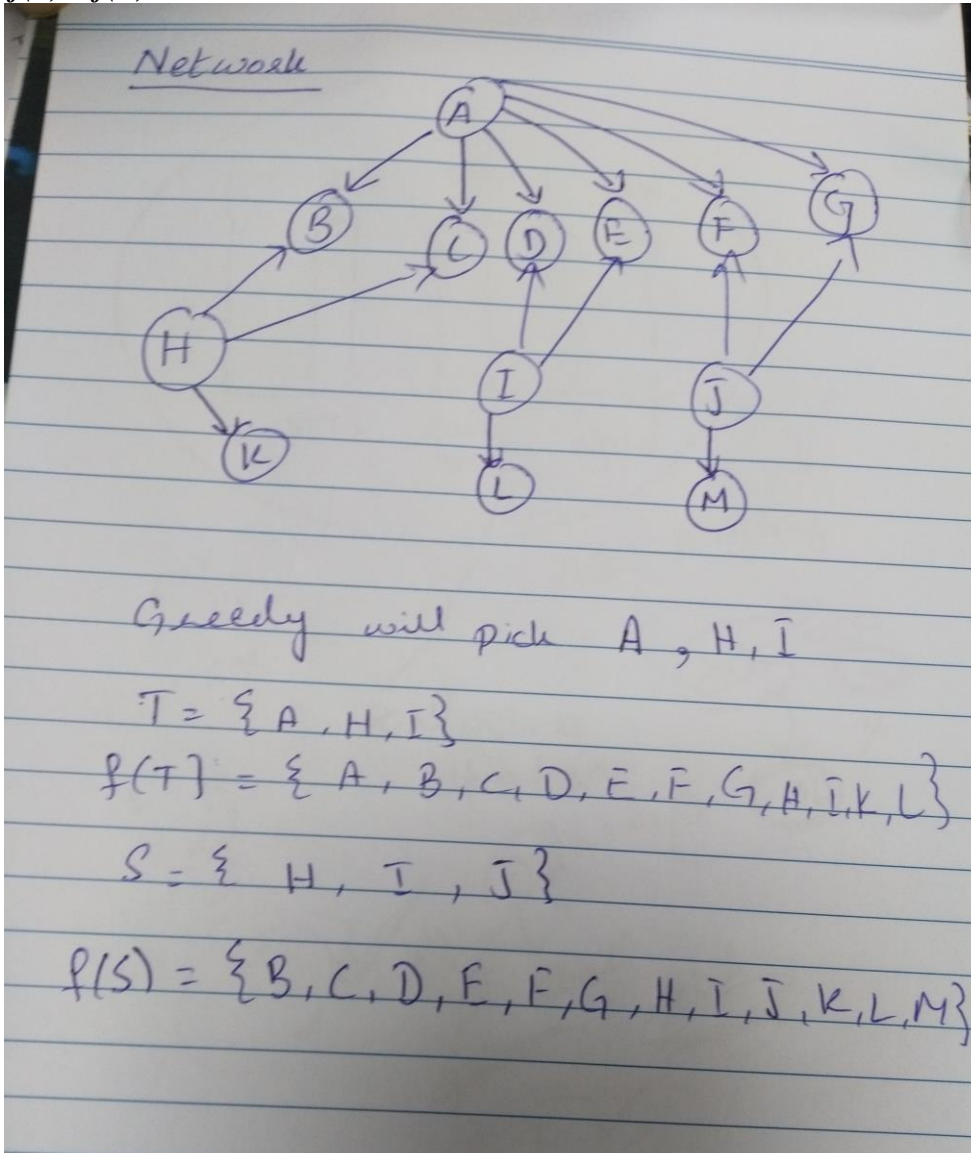 Network
A
B
C
D
E
F
G
H
I
J
K
L
M
Greedy will pick A, H, I
T = {A, H, I}
f(T} = {A, B, C, D, E, F, G, H, I, K, L}
S = {H, I, J}
f(S) = {B, C, D, E, F, G, H, I, J, K, L, M}